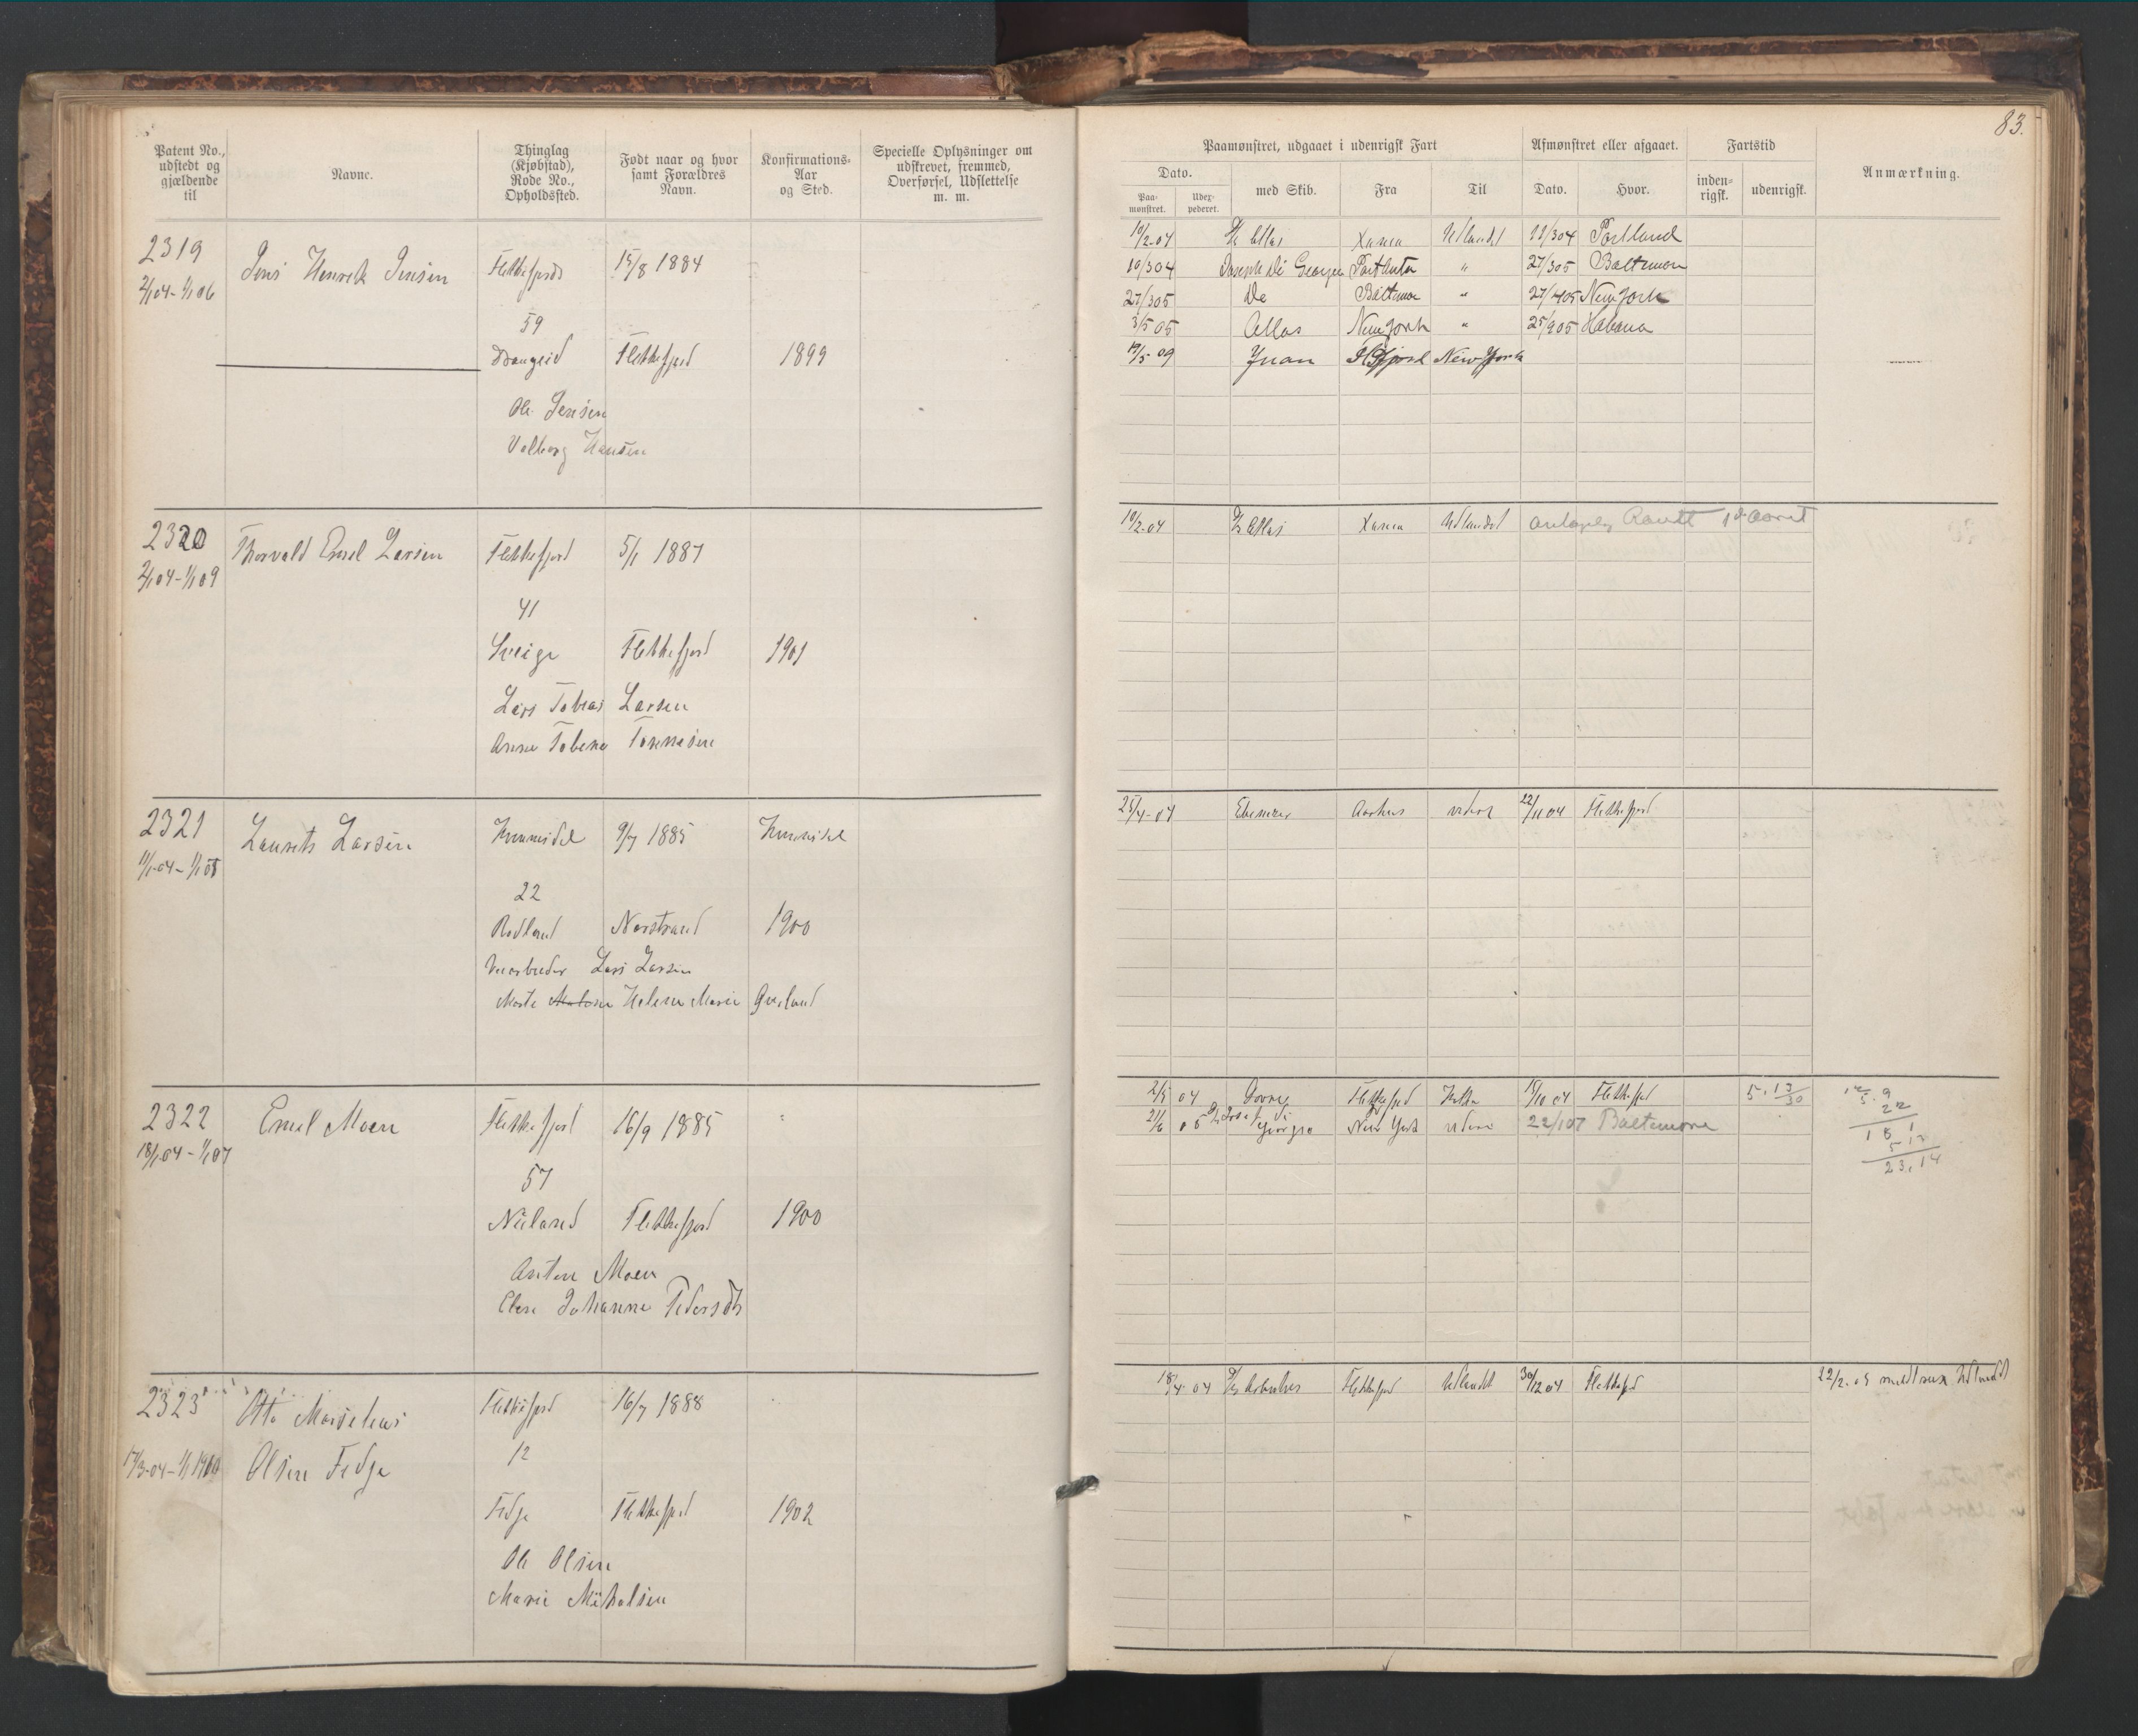 83.
Patent No., udstedt og gjældende til
Navne.
Thinglag (Kjøbstad), Rode No., Opholdssted.
Født naar og hvor samt Forældres Navn.
Konfirmations-Aar og Sted.
Specielle Oplysninger om udskrevet, fremmed, Overførsel, Udslettelse m. m.
Paamønstret, udgaaet i udenrigsk Fart
Afmønstret eller afgaaet.
Fartstid
Anmærkning.
Dato.
med Skib.
Fra
Til
Dato.
Hvor.
inden-rigsk.
udenrigsk.
Paa-mønstret.
2319
Jens Henrek Jensen
Flekkefjord
15/8 1884
2/1 04 - 1/1 06
59
Flekkefjord
1899
Ole Jensen
Valborg Hansen
10/2-04 Atlas Xania Udlandet 12/3 04 Portland
10/3 04 Joseph di Georgeo Port Anto " 27/3 05 Baltimore
27/3 05 Do Baltimor " 27/4 05 New York
3/5 05 Atlas New York " 25/9 05 Habana
19/5 09 Juan New York
2320
Thorvald Emel Larsen
Flekkefjord
5/1 1887
2/1 04 - 1/1 09
41
Sveige
Flekkefjord
1901
Lars Tobias Larsen
Anna Tobena Tønnesen
10/2-04 Atlas Xania Udlandet
2321
Laurets Larsen
9/7 1885
22
Rødland
1900
Lars Larsen
Helene Marie
25/4-04 Ebenezer Aarhus videre 22/11 04 Flekkefjord
2322
Emel Moen
Flekkefjord
16/9 1885
18/1-04 - 1/1 07
57
Nuland
Flekkefjord
1900
Anton Moen
Elen Johanne Pedersdtr
2/5 04 Dovre Flekkefjord 15/10 04 Flekkefjord 5. 13/30
21/6 05 Josef di Giorgio New York videre 22/1 07 Baltimore
5.9
22
18 1
5 13
23.14
2323
Otto Marselius
Flekkefjord
16/7 1888
17/3-04 - 1/1 1910
Olsen Fedje
12
Fedje
Flekkefjord
1902
Ole Olsen
Marie Mikalsen
18/4 04 Flekkefjord Udlandet 30/12 04 Flekkefjord